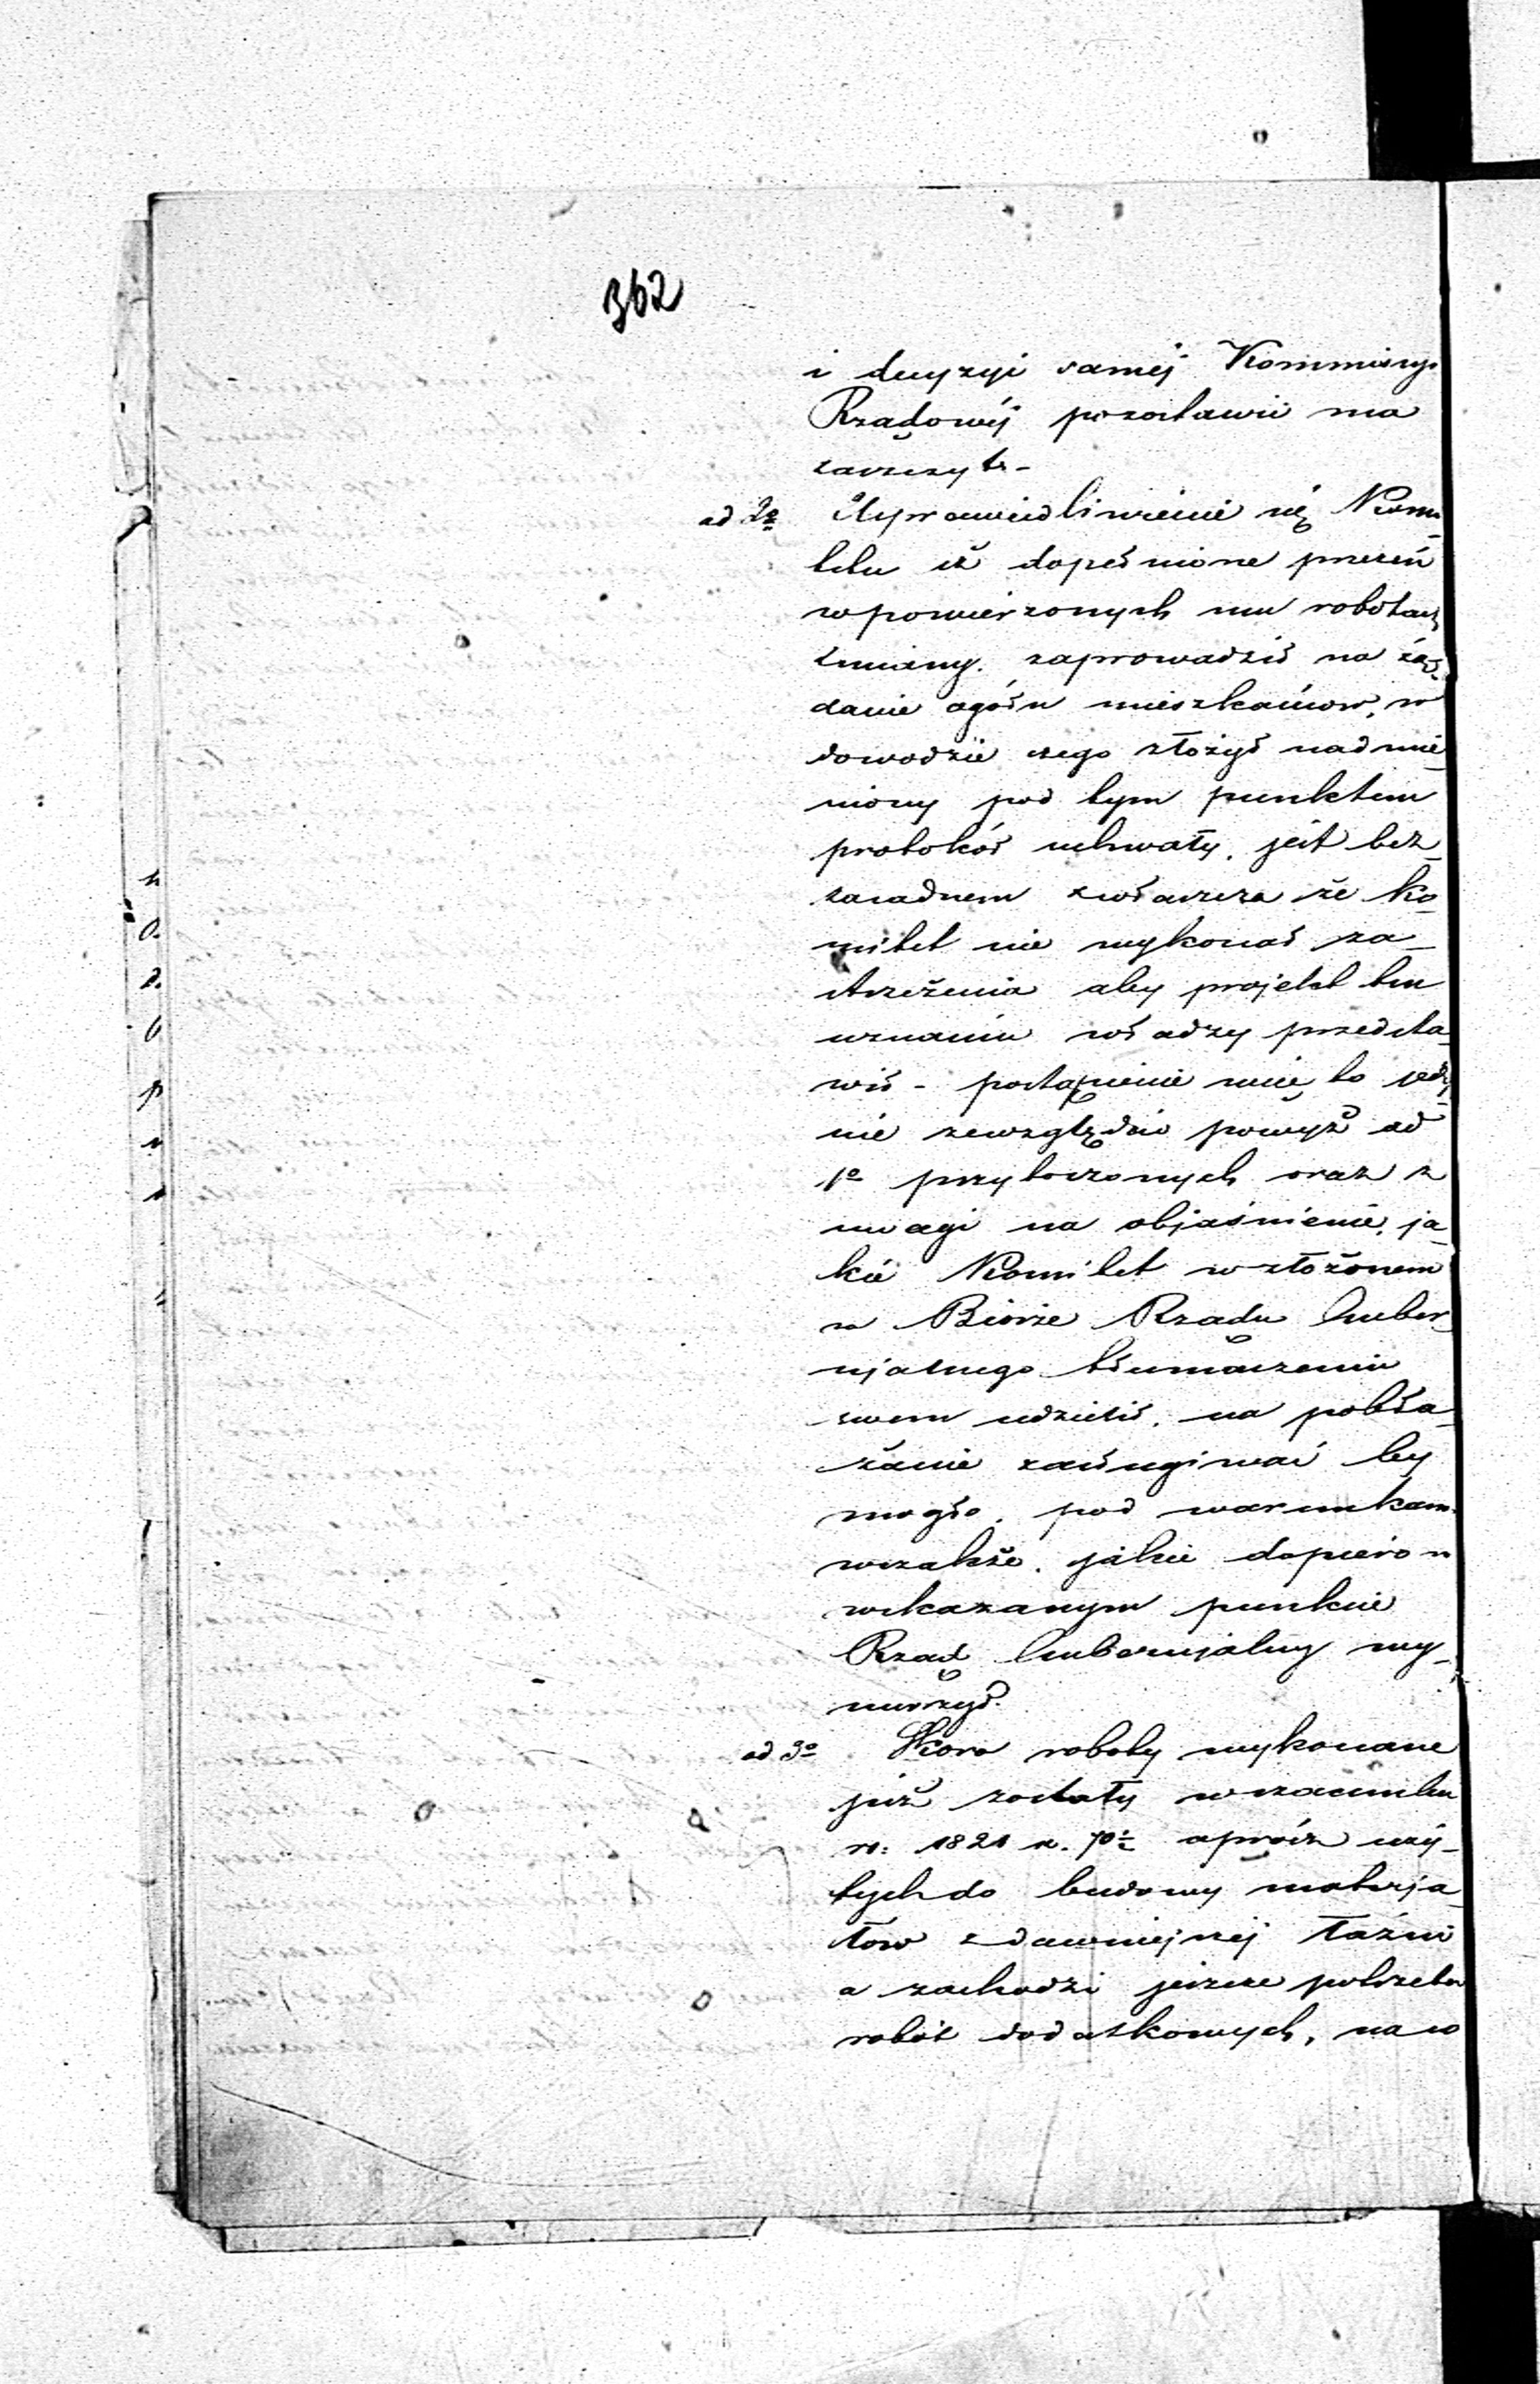 362
i decyzyi saméj Kommissyi
Rządowéj pozostawić ma
zaszczyt. -
ad 2o Usprawiedliwienie się Komi-
tetu iż dopełnione przezeń
w powierzonych mu robotach
zmiany. zaprowadził na żą-
danie ogółu mieszkańców, w
dowodzie czego złożył nadmie-
niony pod tym punktem
protokół uchwały, jest bez-
zasadnem zwłaszcza że Ko-
mitet nie wykonał za-
strzeżenia aby projekt ten
uznaniu władzy przedsta-
wił - postąpienie więc to jedy-
nie ze względów powyż ad
1o przytoczonych oraz z
uwagi na objaśnienie, ja-
kie Komitet w złożonem
w Biórze Rządu Guber-
njalnego tłumaczeniu
swem udzielił, na pobła-
żanie zasługiwać by
mogło, pod warunkam
wszakże, jakie dopiero w
wskazanym punkcie
Rząd Gubernjalny wy-
nurzył.
ad 3o Skoro roboty wykonane
już zostały w szacunku
rs: 1821 k. 70 1/2 oprócz uży-
tych do budowy materja-
łów z dawniejszéj łaźni
a zachodzi jeszcze potrzeba
robót dodatkowych, na co